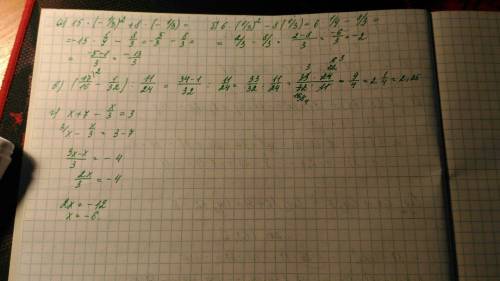 а) 15 · (- 1/3)² + 8 · (- 1/3) =
= - 15 · 1/9 - 8/3 = - 5/3 - 8/3 =
= (-5-8)/3 = -13/3
б) 6 · (1/3)² - 8 · (1/3) = 6 · 1/9 - 8/3 =
= 2/3 - 8/3 = (2-8)/3 = -6/3 = -2
: 11/24 = (34-1)/32 : 11/24 = 33/32 : 11/24 = 33/32 · 24/11 = 9/4 = 2 1/4 = 2,25
г) x + 7 - x/3 = 3
x - x/3 = 3 - 7
(3x-x)/3 = -4
2x/3 = -4
2x = -12
x = -6